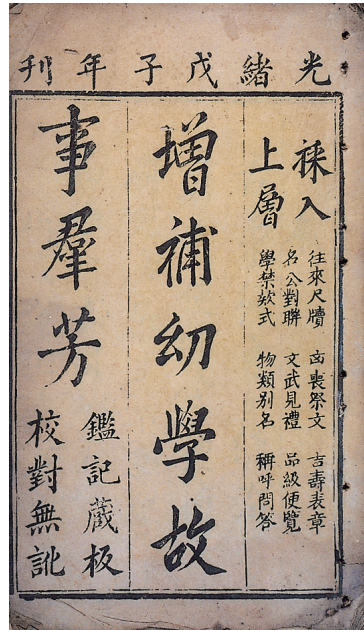 光緒戊子年刊
採入
上層
往來尺牘 㐫喪祭文 吉壽表章
名公對聯 文武見禮 品級便覽
學禁欵式 物類別名 稱呼問答
增補幼學故
事羣芳
鑑記藏板
校對無訛